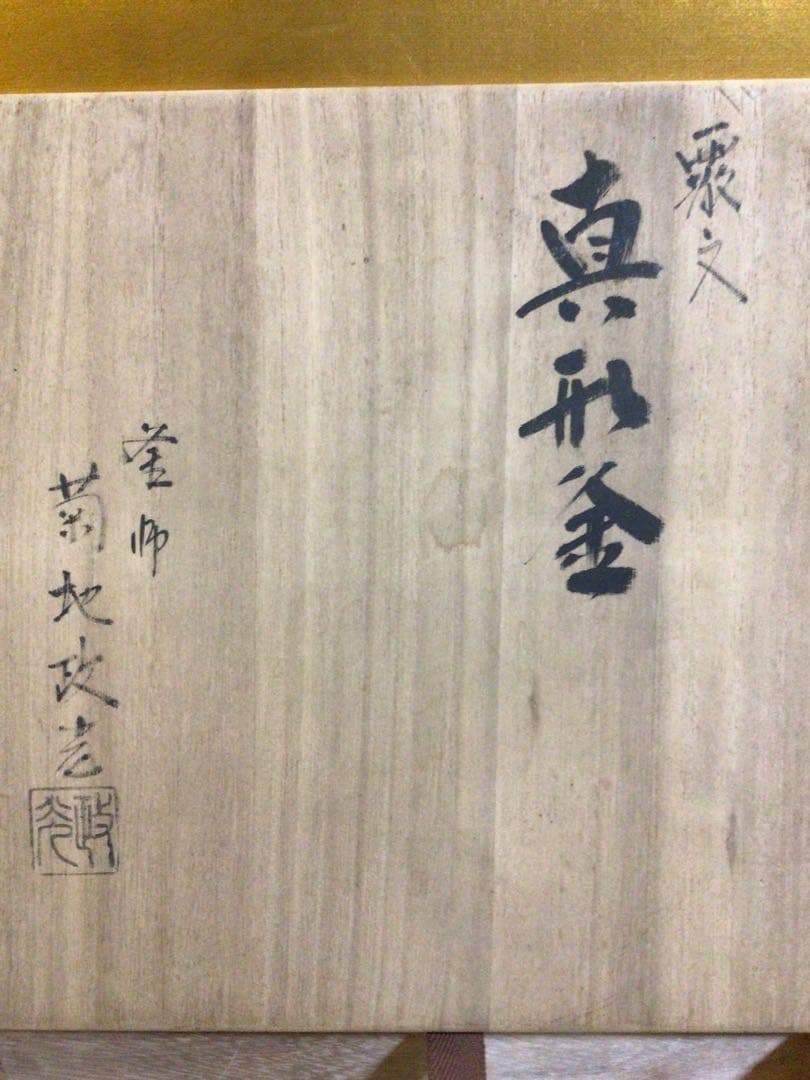 文
真形釜
釜師
菊地政光
政光